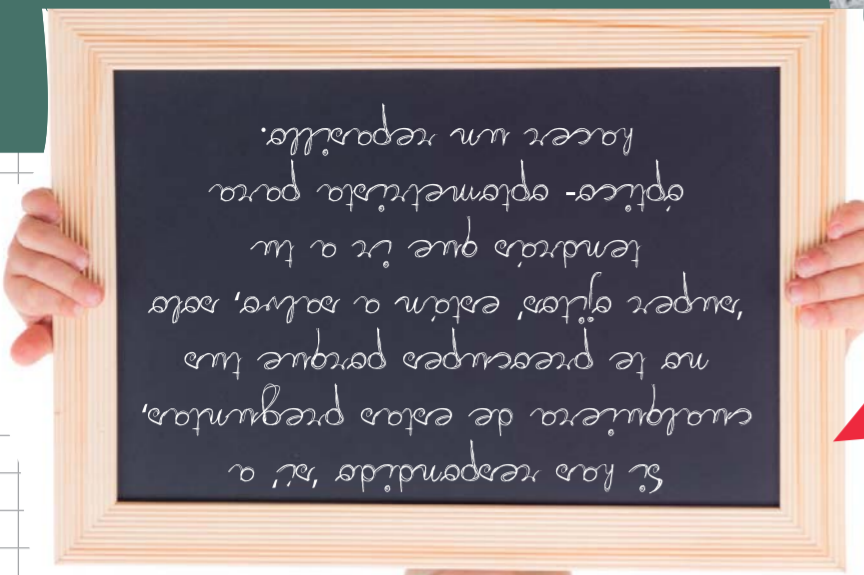 Si has respondido 'sí' a
cualquiera de estas preguntas,
no te preocupes porque tus
'super ojitos' están a salvo, solo
tendrás que ir a tu
óptico- optometrista para
hacer un repasillo.